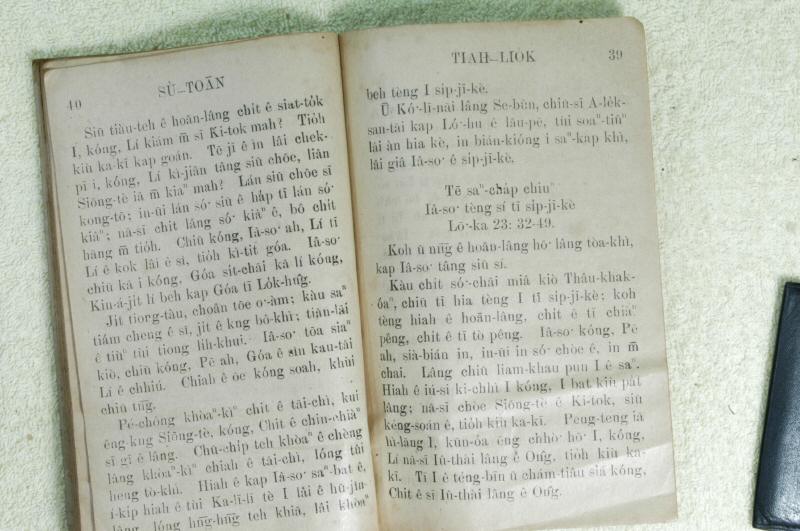 TIAH–LIO̍K 39
beh tèng I si̍p-jī-kè.
Ū Kó͘-lī-nāi lâng Se-bûn, chiū-sī A-le̍k-
san-tāi kap Ló͘-hu ê lāu-pē, tùi soaⁿ-tiūⁿ
lâi àn hia kè, in bián-kióng i saⁿ-kap khì,
lâi giâ Iâ-so͘ ê si̍p-jī-kè.
Tē saⁿ-cha̍p chiuⁿ
Iâ-so͘ tèng sí tī si̍p-jī-kè
Lō͘-ka 23: 32-49.
Koh ū nn̄g ê hoān-lâng hō͘ lâng tòa-khì,
kap Iâ-so͘ tâng siū sí.
Kàu chit só͘-chāi miâ kiò Thâu-khak-
óaⁿ, chiū tī hia tèng I tī si̍p-jī-kè; koh
tèng hiah ê hoān-lâng, chit ê tī chiàⁿ
pêng, chit ê tī tò pêng. Iâ-so͘ kóng, Pē
ah, sià-bián in, in-ūi in só͘ chòe ê, in m̄
chai. Lâng chiū liam-khau pun I ê saⁿ.
Hiah ê iú-si kí-chhì I kóng, I bat kiù pa̍t
lâng; nā-sī chòe Siōng-tè ê Ki-tok, siū
kéng-soán ê, tio̍h kiù ka-kī. Peng-teng iā
hì-lāng I, kūn-óa êng chhò͘ hō͘ I, kóng,
Lí nā-sī Iû-thài lâng ê Ông, tio̍h kiù ka-
kī. Tī I ê téng-bīn ū chám-tiâu siá kóng,
Chit ê sī Iû-thài lâng ê Ông.
40 SÙ–TOĀN
Siū tiàu-teh ê hoān-lâng chit ê siat-to̍k
I, kóng, Lí kiám m̄ sī Ki-tok mah? Tio̍h
kiù ka-kī kap goán. Tē jī ê in lâi chek-
pī i, kóng, Lí kì-jiân tâng siū chōe, liân
Siōng-tè iā m̄ kiaⁿ mah? Lán siū chōe sī
kong-tō; in-ūi lán só͘ siū ê ha̍p tī lán só͘
kiâⁿ; nā-sī chit lâng só͘ kiâⁿ ê, bô chit
hāng m̄ tio̍h. Chiū kóng, Iâ-so͘ ah, Lí tī
Lí ê kok lâi ê sî, tio̍h kì-tit góa. Iâ-so͘
chiū kā i kóng, Góa si̍t-chāi kā lí kóng,
Kin-á-ji̍t lí beh kap Góa tī Lo̍k-hn̂g.
Ji̍t tiong-tàu, choân tōe o͘-àm; kàu saⁿ
tiám cheng ê sî, ji̍t ê kng bô-khì; tiān-lāi
ê tiùⁿ tùi tiong li̍h-khui. Iâ-so͘ tōa siaⁿ
kiò, chiū kóng, Pē ah, Góa ê sîn kau-tāi
Lí ê chhiú. Chiah ê ōe kóng soah, khùi
chiū tn̄g.
Pé-chóng khòaⁿ-kìⁿ chit ê tāi-chì, kui
êng-kng Siōng-tè, kóng, Chit ê chin-chiàⁿ
sī gī ê lâng. Chū-chi̍p teh khòaⁿ ê chèng
lâng khòaⁿ-kìⁿ chiah ê tāi-chì, lóng tûi
heng tò-khì. Hiah ê kap Iâ-so͘ saⁿ-bat ê,
í-ki̍p hiah ê tùi Ka-lī-lī tè I lâi ê hū-jîn-
lâng, lóng hn̄g-hn̄g teh khiā, lâi khòaⁿ